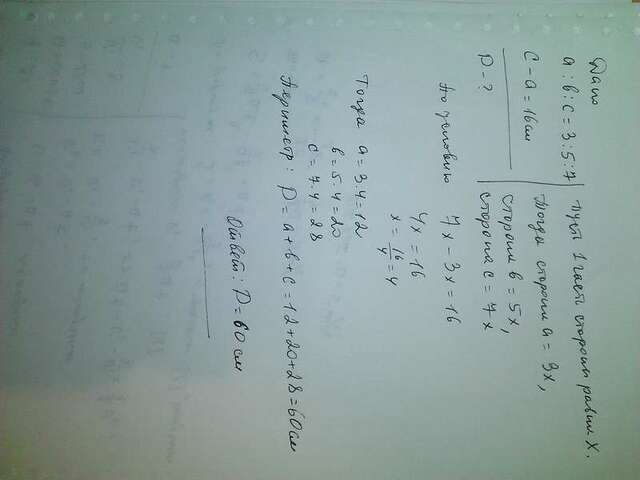 Дано
a : в : c = 3 : 5 : 7
C - a = 16 см
P - ?
Пусть 1 часть стороны равна X.
Тогда сторона a = 3x,
сторона в = 5x,
сторона c = 7x
По условию 7x - 3x = 16
4x = 16
x = 16/4 = 4
Тогда a = 3.4 = 12
в = 5.4 = 20
c = 7.4 = 28
Периметр : P = a + в + c = 12 + 20 + 28 = 60 см
Ответ : P = 60 см